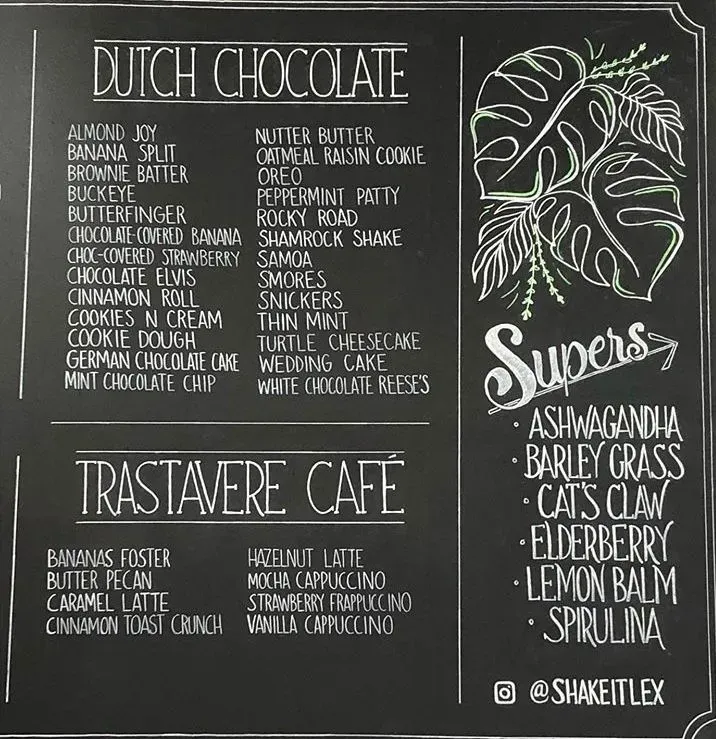 DUTCH CHOCOLATE
ALMOND JOY
BANANA SPLIT
BROWNIE BATTER
BUCKEYE
BUTTERFINGER
CHOCOLATE-COVERED BANANA
CHOC-COVERED STRAWBERRY
CHOCOLATE ELVIS
CINNAMON ROLL
COOKIES N CREAM
COOKIE DOUGH
GERMAN CHOCOLATE CAKE
MINT CHOCOLATE CHIP
NUTTER BUTTER
OATMEAL RAISIN COOKIE
OREO
PEPPERMINT PATTY
ROCKY ROAD
SHAMROCK SHAKE
SAMOA
SMORES
SNICKERS
THIN MINT
TURTLE CHEESECAKE
WEDDING CAKE
WHITE CHOCOLATE REESE'S
TRASTAVERE CAFÉ
BANANAS FOSTER
BUTTER PECAN
CARAMEL LATTE
CINNAMON TOAST CRUNCH
HAZELNUT LATTE
MOCHA CAPPUCCINO
STRAWBERRY FRAPPUCCINO
VANILLA CAPPUCCINO
Supers
• ASHWAGANDHA
• BARLEY GRASS
• CAT'S CLAW
• ELDERBERRY
• LEMON BALM
• SPIRULINA
@SHAKEITLEX